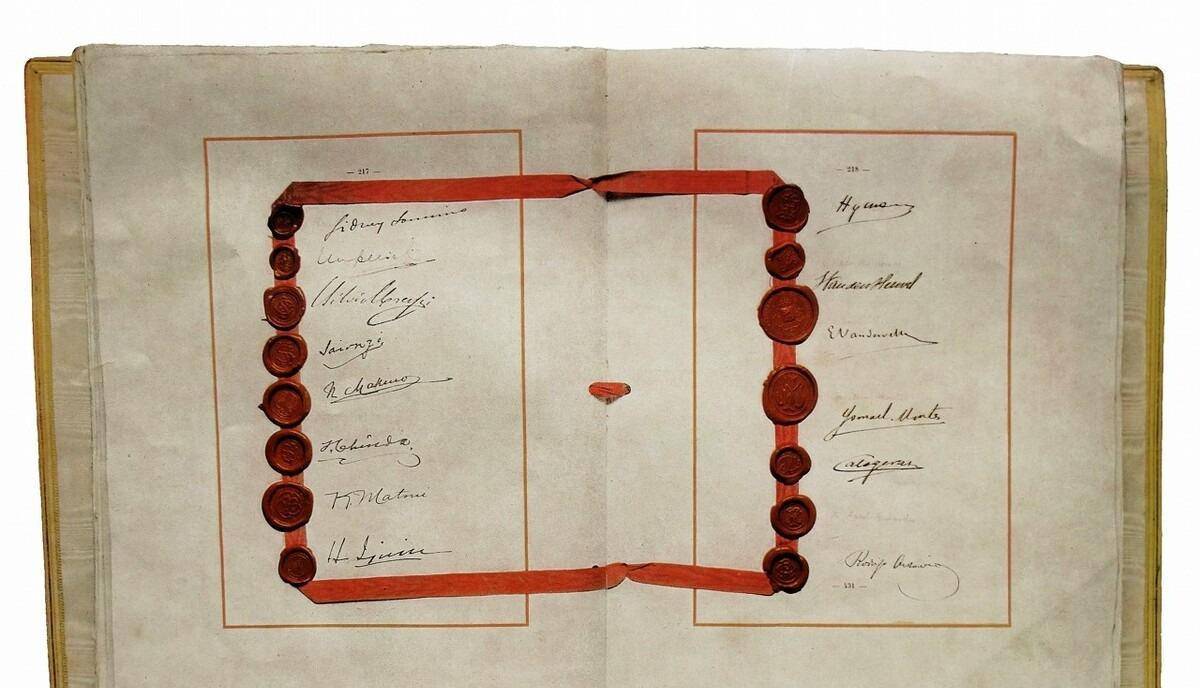 — 217 —
Sidney Sonnino
Imperiali
Silvio Crespi
Saionzi
N. Makino
S. Chinda.
K. Matsui
H Ijuin
— 218 —
Hymans
J Van den Heuvel
E Vandervelde
Ysmael Montes
Calogeras
Rodrigo Octavio
— 431 —